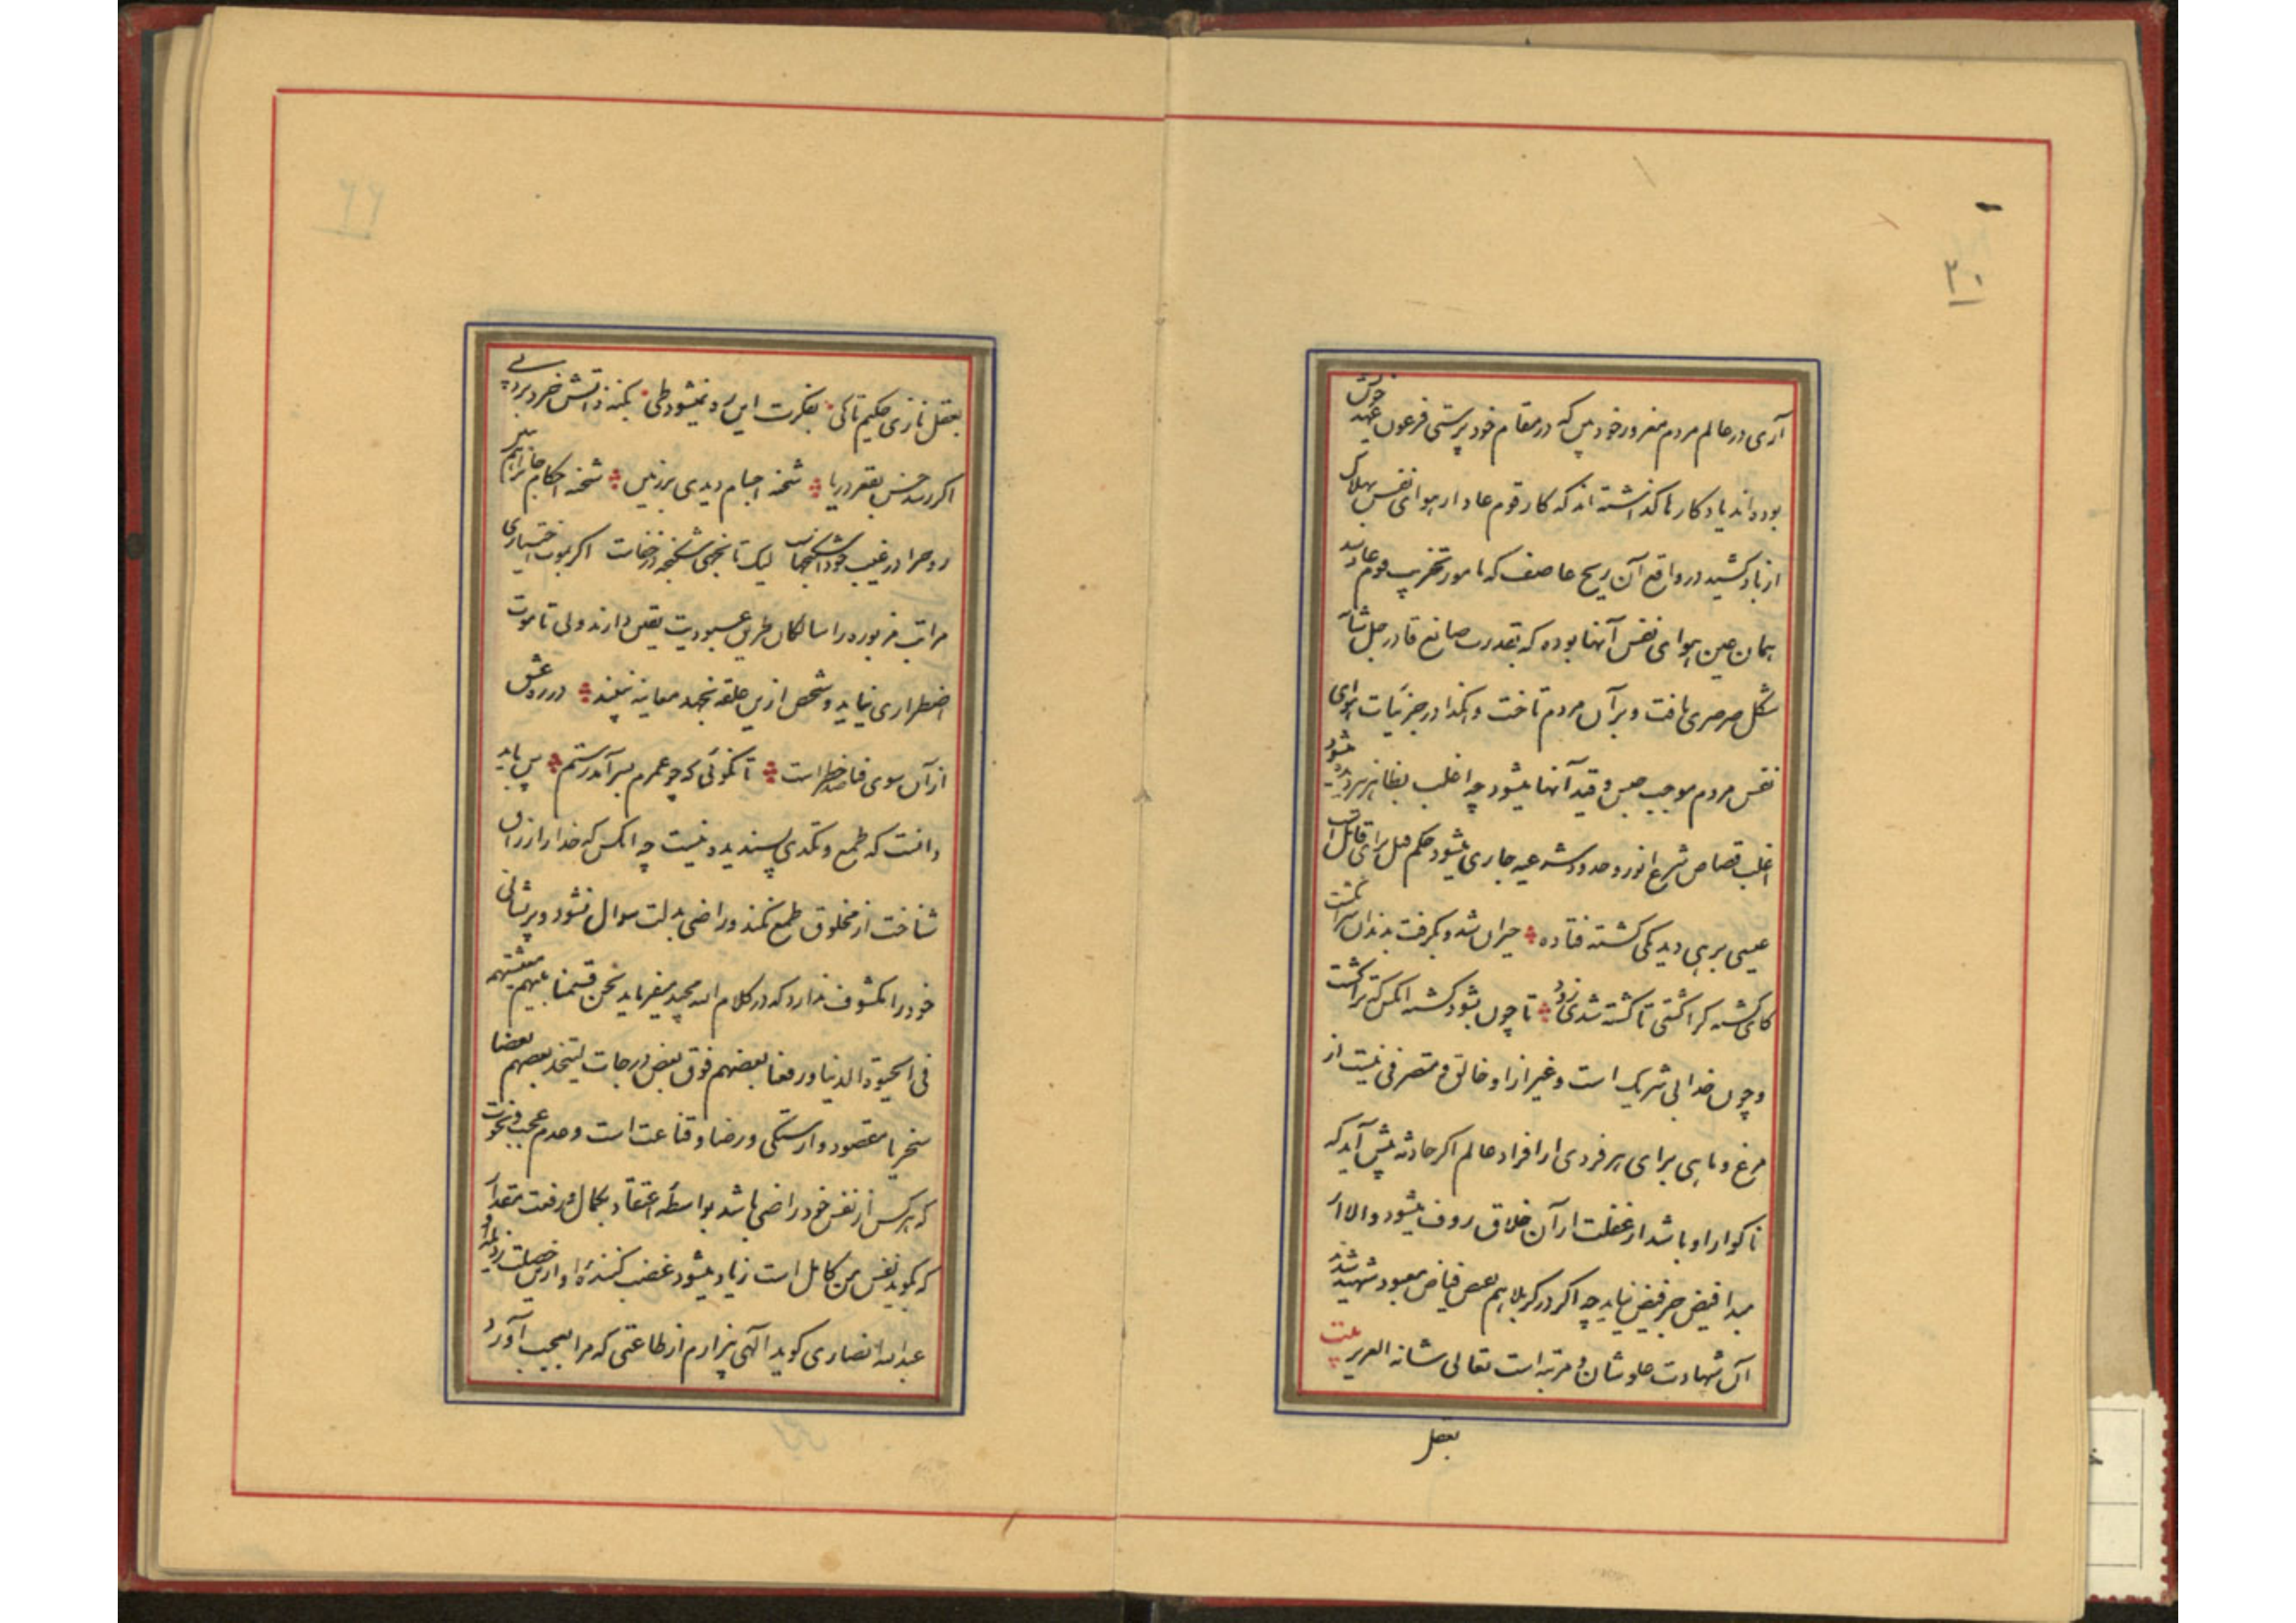 ۳۰
آری در عالم مردم مغرور خود بین که در مقام خود پرستی فرعون عهد خویش
بوده‌اند یادکارها کذاشته اند که کار قوم عاد از هوای نفس بهلاک
از باد کشید در واقع آن ریح عاصف که مامور تخریب قوم عاد شد
همان عین هوای نفس آنها بوده که بقدرت صانع قادر جل شانه
شکل صرصری یافت و بر آن مردم تاخت و هکذا در جزئیات هوای
نفس مردم موجب حبس و قید آنها میشود چه اغلب بظاهر هم دیده میشود
اغلب قصاص شرع انور و حدود شرعیه جاری میشود حکم قتل برای قاتل است
عیسی برهی دید یکی کشته فتاده حیران شد و بکرفت بدندان سر انکشت
کای کشته کرا کشتی تا کشته شدی زود تا چون بشود کشته انکس که ترا کشت
و چون خدا بی شریک است و غیر از او خالق و متصرفی نیست از
مرغ و ماهی برای هر فردی از افراد عالم اکر حادثه پیش آید که
ناکوار او باشد از غفلت از آن خلاق رؤف میشود و الا از
مبدا فیض جز فیض نیاید چه اکر در کربلا هم بعض فیاض معبود شهید شدند
آن شهادت علو شان و مرتبه است تعالی شانه العزیز بیت
بعقل
۶۶
بعقل نازی حکیم تا کی بفکرت این ره نمیشود طی بکنه ذاتش خرد برد پی
اکر رسد خس بقعر دریا شحنه اجسام دیدی بر زمین شحنه احکام جان را هم ببین
روح را در غیب خود اشکنجهاست لیک تا نجهی شکنجه در خفاست اکر بموت اختیاری
مراتب مزبوره را سالکان طریق عبودیت یقین دارند ولی تا موت
اضطراری نیاید و شخص ازین حلقه نجهد معاینه نبیند در ره عشق
از آن سوی فنا صد خطر است تا نکوئی که چو عمرم بسر آمد رستم پس باید
دانست که طمع و تکدی پسندیده نیست چه انکس که خدا را رزاق
شناخت از مخلوق طمع نکند و راضی بذلت سوال نشود و پریشانی
خود را مکشوف ندارد که در کلام الله مجید میفرماید نحن قسمنا بینهم معیشتهم
فی الحیوة الدنیا و رفعنا بعضهم فوق بعض درجات لیتخذ بعضهم بعضا
سخریا مقصود وارستکی و رضا و قناعت است و عدم عجب و نخوت
که هر کس از نفس خود راضی باشد بواسطه اعتقاد بکمال و رفعت مقدار
که کوید نفس من کامل است زیاد میشود غضب کننده او ازین خصلت رذیله او
عبدالله انصاری کوید آلهی بیزارم از طاعتی که مرا بعجب آورد